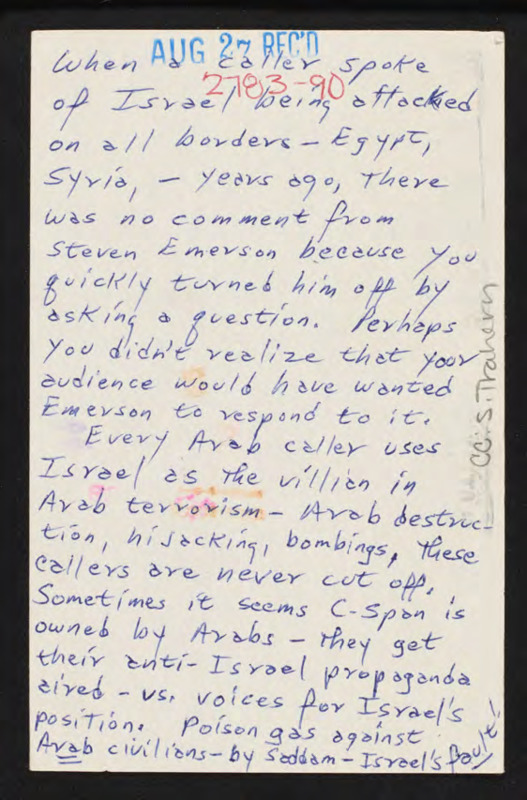 AUG 27 REC'D
2783-90
When a caller spoke
of Israel being attacked
on all borders – Egypt,
Syria, – years ago, there
was no comment from
Steven Emerson because you
quickly turned him off by
asking a question. Perhaps
you didn't realize that your
audience would have wanted
Emerson to respond to it.
Every Arab caller uses
Israel as the villian in
Arab terrorism – Arab destruc-
tion, hijacking, bombings, these
callers are never cut off.
Sometimes it seems C-Span is
owned by Arabs – they get
their anti-Israel propaganda
aired – vs. voices for Israel's
position. Poison gas against
Arab civilians – by Saddam – Israel's fault!
CC: S. Trahern